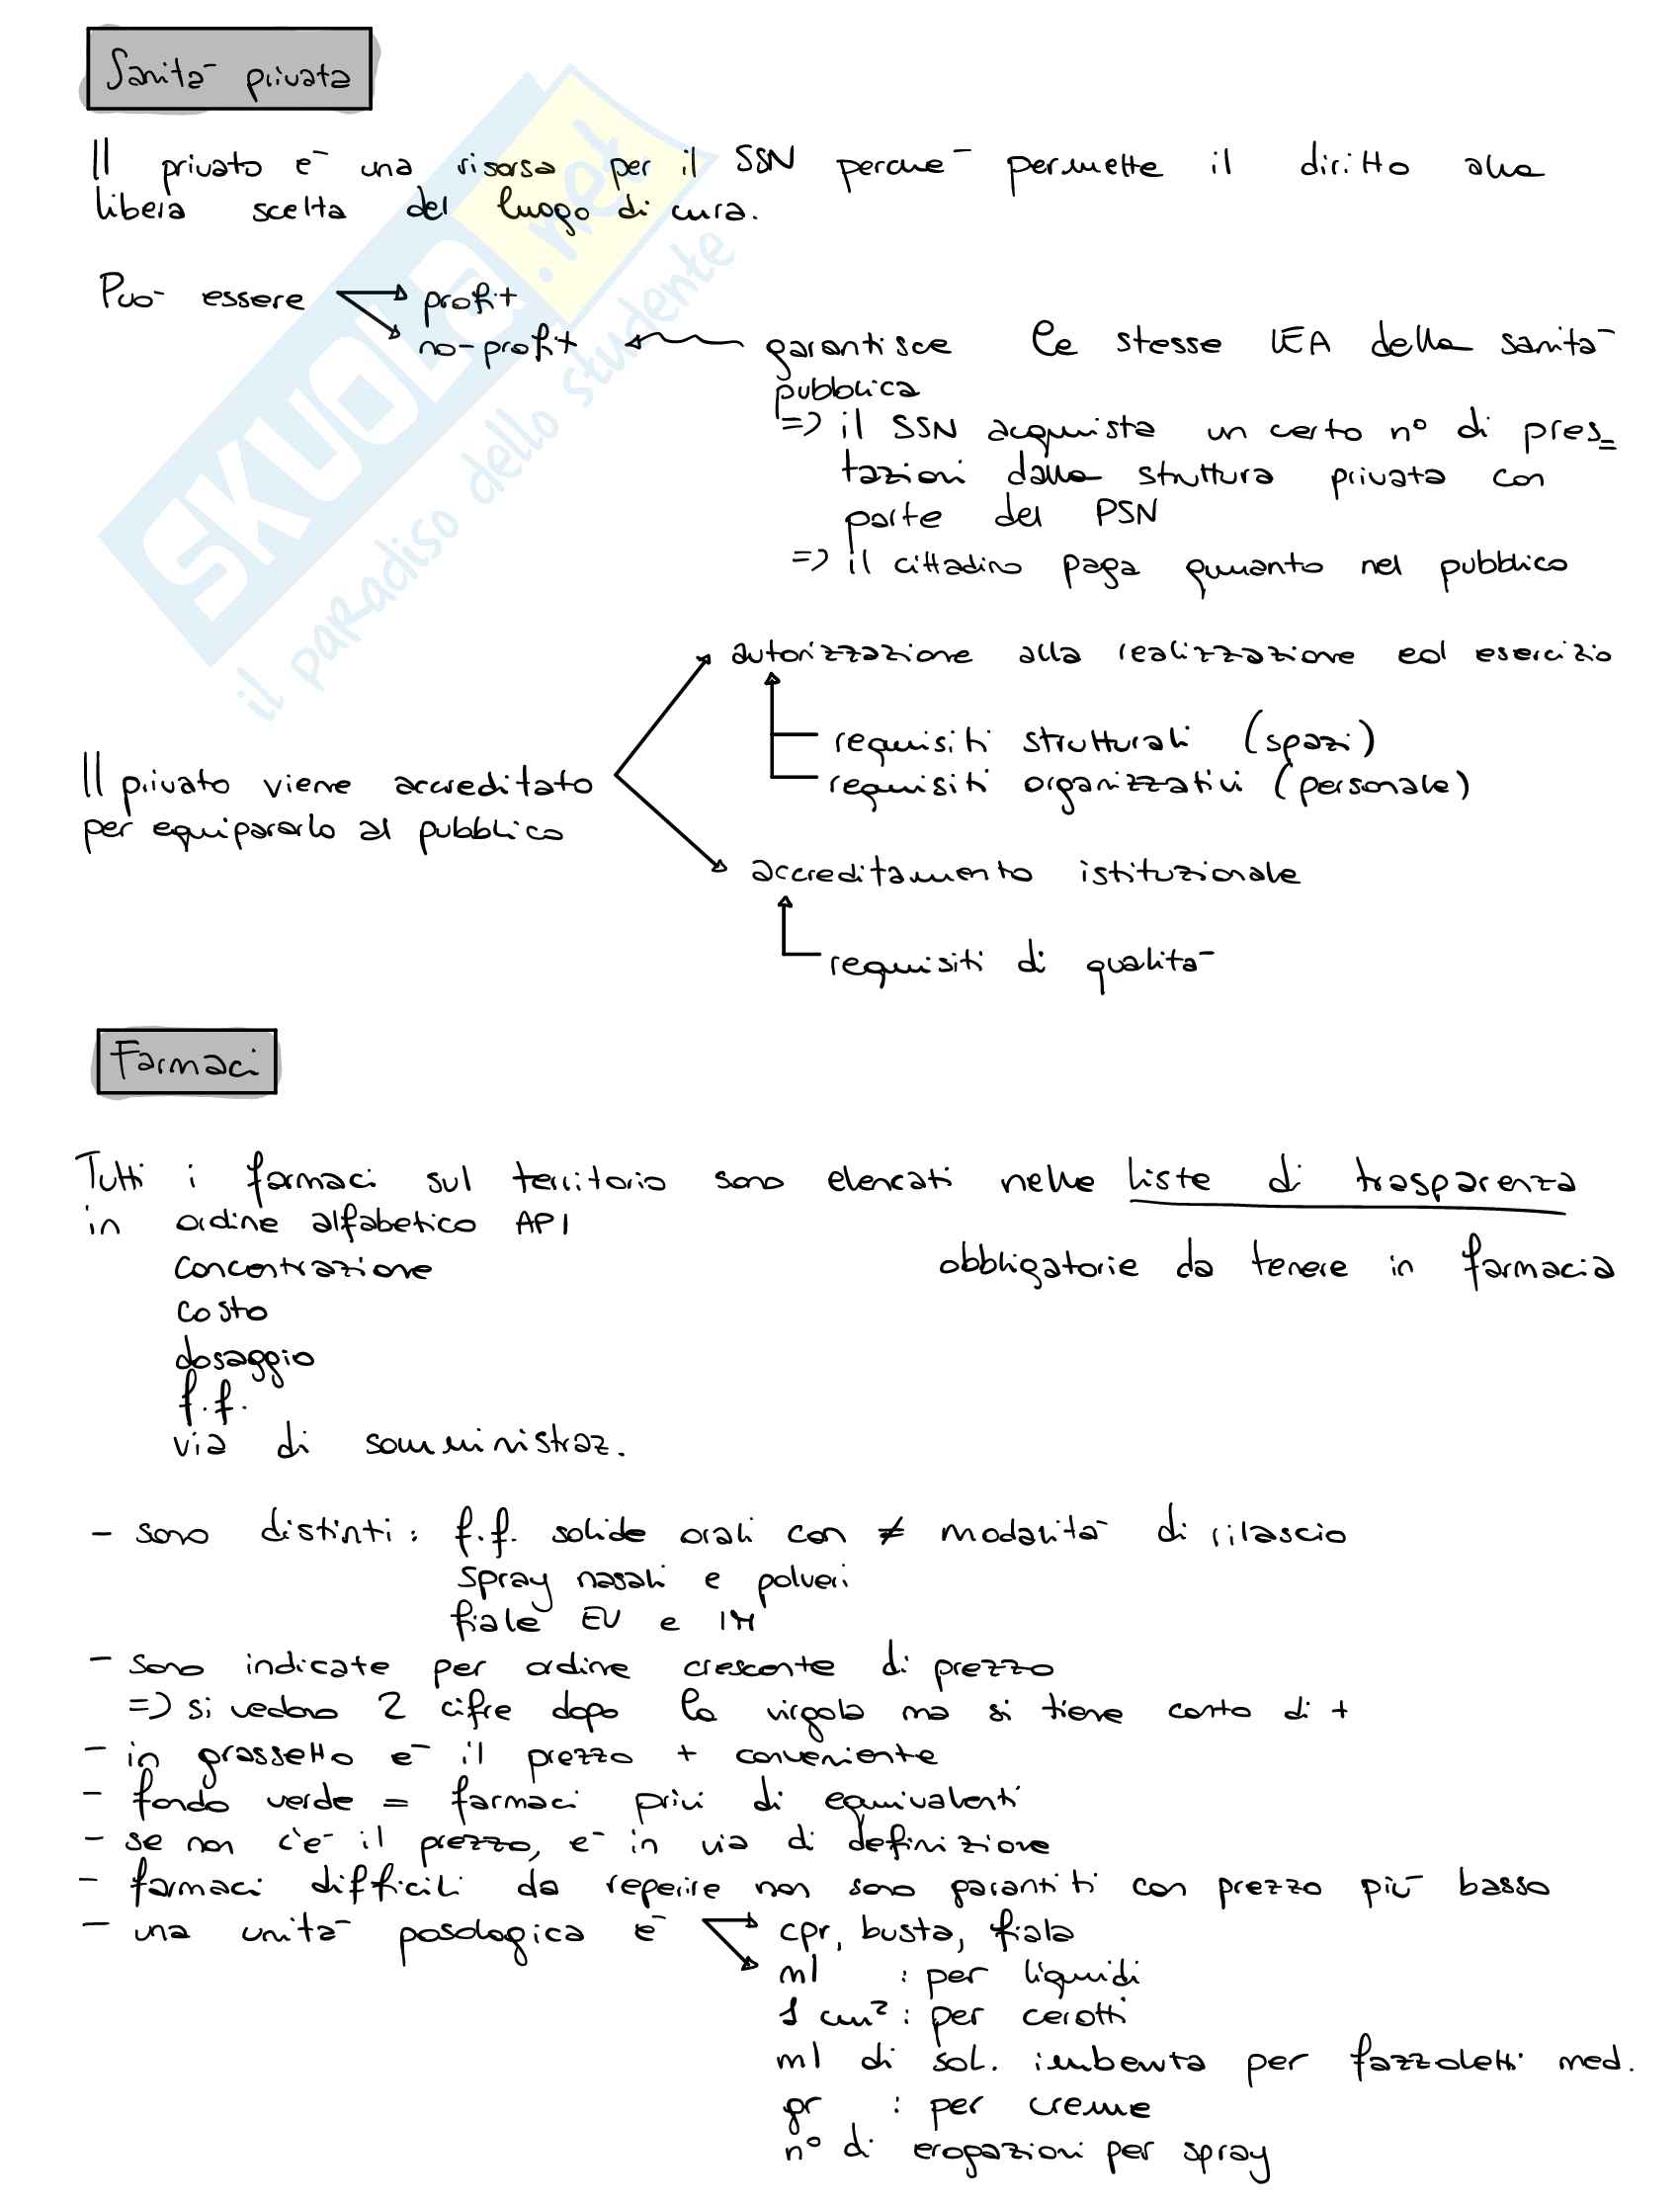 Sanità privata
Il privato è una risorsa per il SSN perché permette il diritto alla
libera scelta del luogo di cura.
Può essere profit
no-profit garantisce le stesse LEA della sanità
pubblica
=> il SSN acquista un certo n° di pres=
tazioni dalla struttura privata con
parte del PSN
=> il cittadino paga quanto nel pubblico
autorizzazione alla realizzazione ed esercizio
requisiti strutturali (spazi)
Il privato viene accreditato
requisiti organizzativi (personale)
per equipararlo al pubblico
accreditamento istituzionale
requisiti di qualità
Farmaci
Tutti i farmaci sul territorio sono elencati nelle liste di trasparenza
in ordine alfabetico API
concentrazione
obbligatorie da tenere in farmacia
costo
dosaggio
f.f.
via di somministraz.
- sono distinti: f.f. solide orali con ≠ modalità di rilascio
spray nasali e polveri
fiale EV e IM
- sono indicate per ordine crescente di prezzo
=> si vedono 2 cifre dopo la virgola ma si tiene conto di +
- in grassetto è il prezzo + conveniente
- fondo verde = farmaci privi di equivalenti
- se non c'è il prezzo, è in via di definizione
- farmaci difficili da reperire non sono garantiti con prezzo più basso
- una unità posologica è cpr, busta, fiala
ml : per liquidi
1 cm² : per cerotti
ml di sol. imbevuta per fazzoletti med.
gr : per creme
n° di erogazioni per spray
SKUOLA.net
il paradiso dello studente